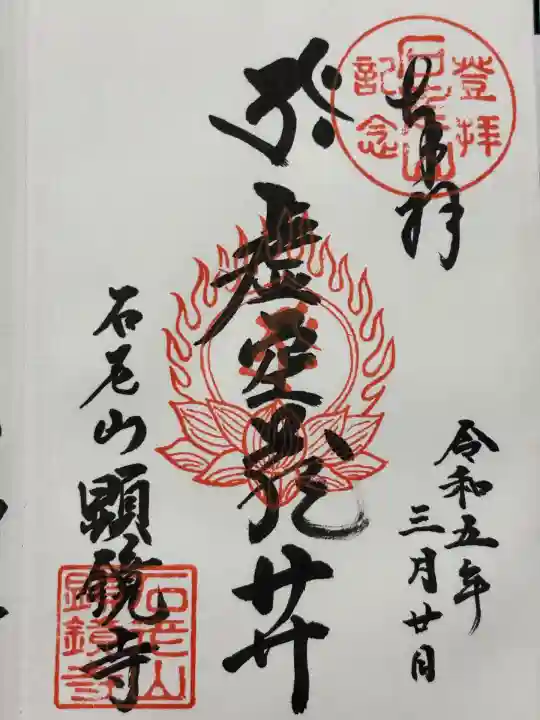 奉拝
登拝
石老山
記念
令和五年
三月廿日
虚空蔵𦬇
石老山顕鏡寺
石老山
顕鏡寺